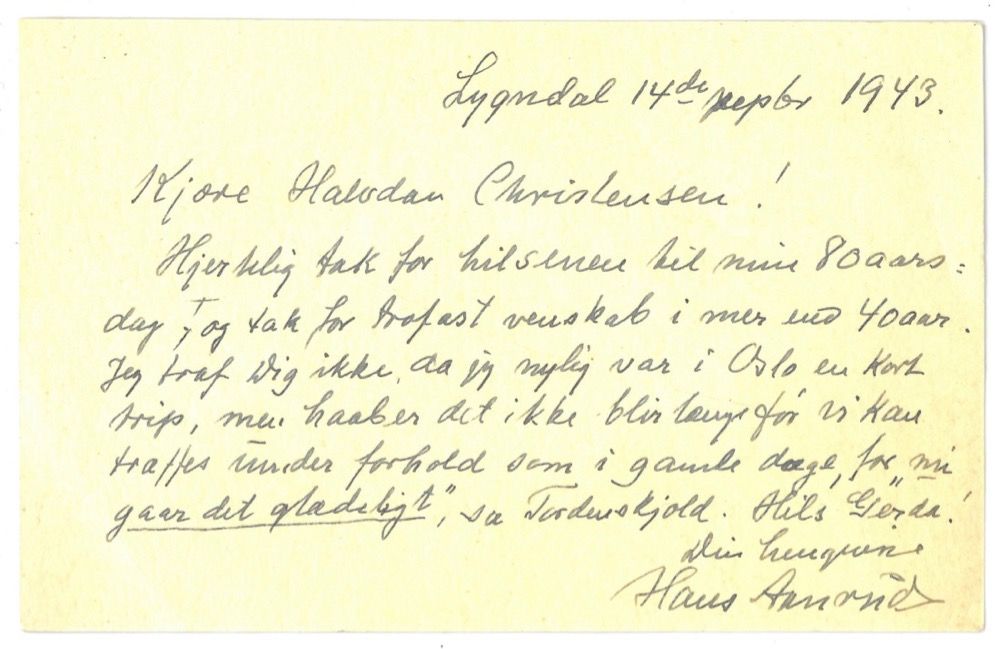 Lyngdal 14de septbr 1943.
Kjære Halvdan Christensen!
Hjertelig tak for hilsenen til min 80 aars=
dag, og tak for trofast venskab i mer end 40 aar.
Jeg traf Dig ikke, da jeg nylig var i Oslo en kort
trip, men haaber det ikke blir længe før vi kan
træffes under forhold som i gamle dage, for "nu
gaar det gladeligt", sa Tordenskjold. Hils Gerda!
Din hengivne
Hans Aanrud